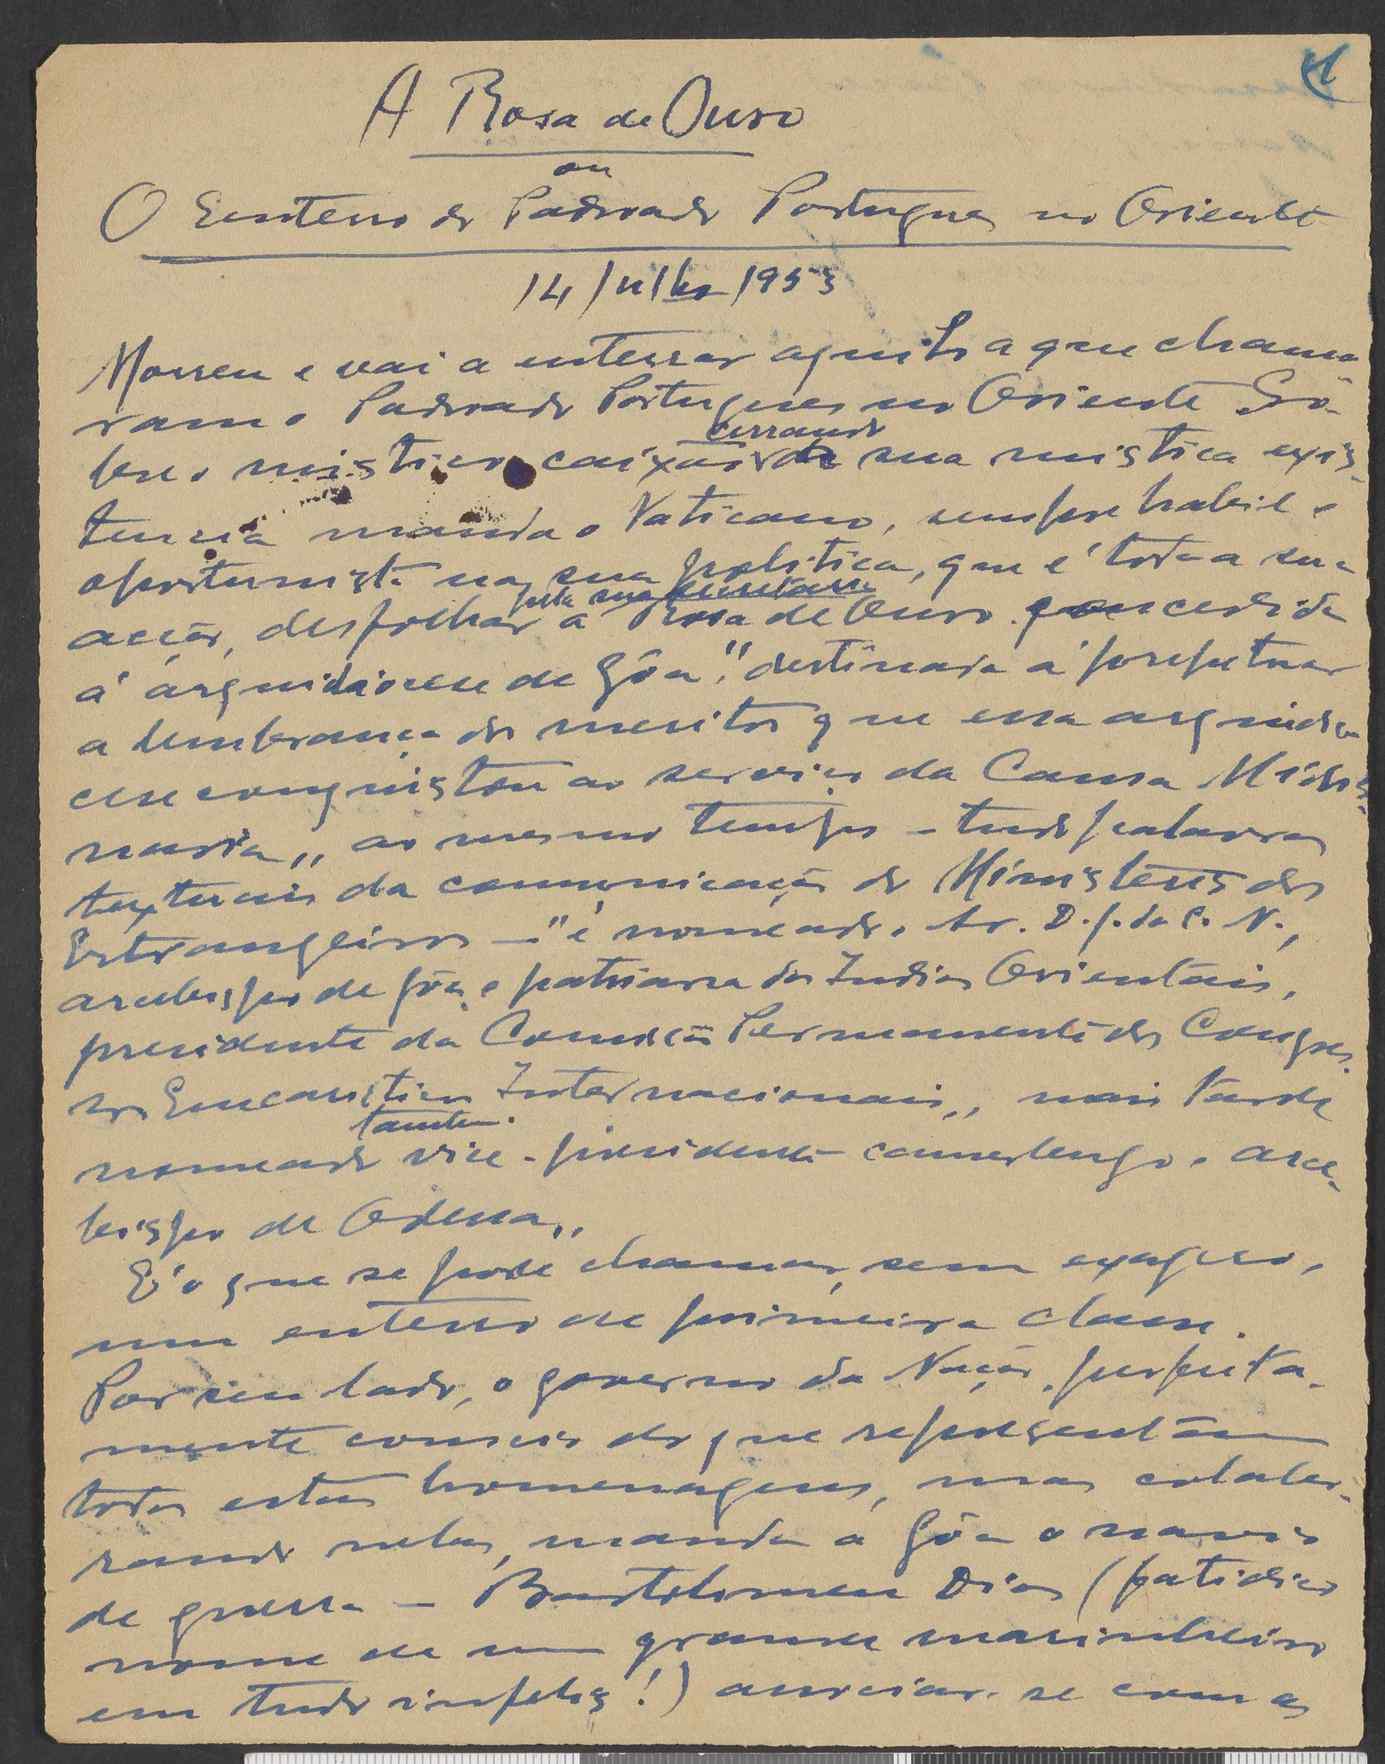 1
A Rosa de Ouro
ou
O Enterro do Padroado Portugues no Oriente
14/Julho/1953
Morreu e vai a enterrar aquilo a que chama
ram o Padroado Portugues no Oriente Sô-
bre o mistico caixão cerrando sua mistica exis-
tencia manda o Vaticano, sempre habil e
oportunista na sua politica, que é toda a sua
acção, desfolhar a Rosa de Ouro "concedida
á arquidiocese de Gôa", destinada a perpetuar
a lembrança dos meritos que essa arquidio
cese conquistou ao serviço da Causa Missio-
naria,, ao mesmo tempo - tudo palavras
textuais da comunicação do Ministerio dos
Estrangeiros - "é nomeado o Sr. D. J. da C. N.,
arcebispo de Gôa e patriarca das Indias Orientais,
presidente da Comissão Permanente dos Congres-
sos Eucaristicos Internacionais,, mais tarde
nomeado tambem vice-presidente camerlengo e arce-
bispo de Odessa,,
E' o que se pode chamar, sem exagero,
um enterro de primeira classe.
Por seu lado, o governo da Nação, perfeita-
mente conscio do que representam
todas estas homenagens, mas colabo-
rando nelas, manda a Gôa o navio
de guerra - Bartolomeu Dias (fatidico
nome de um grande marinheiro
em tudo infeliz!) associar-se com as